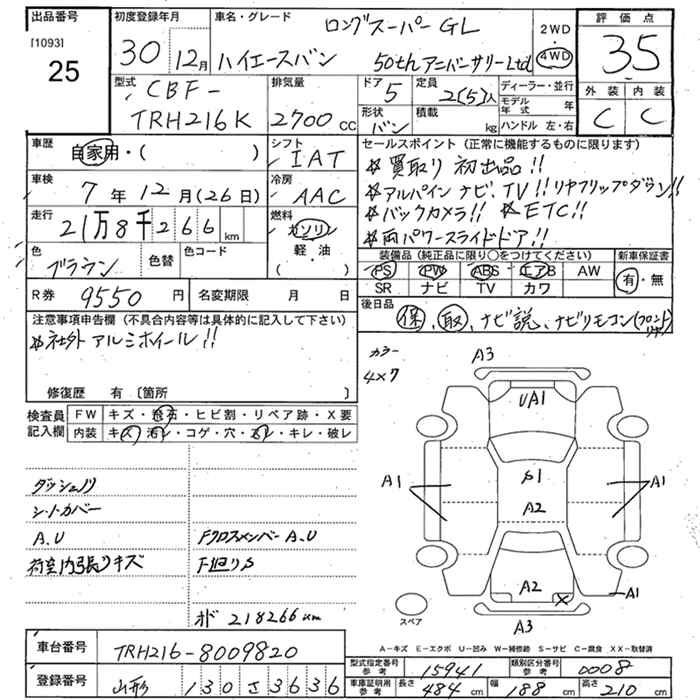 出品番号
[1093]
25
初度登録年月
30 12月
車名・グレード
ロングスーパーGL
ハイエースバン 50th アニバーサリーLtd
2WD
4WD
評価点
3.5
外装 内装
C C
型式
CBF-
TRH216K
排気量
2700 cc
ドア
5
定員
2(5)人
形状
バン
積載
kg
ディーラー・並行
モデル年式 年
ハンドル 左・右
車歴
自家用・( )
シフト
IAT
セールスポイント (正常に機能するものに限ります)
*買取り 初出品!!
*アルパイン ナビ、TV!! リヤフリップダウン!!
*バックカメラ!! *ETC!!
*両パワースライドドア!!
車検
7年 12月 (26日)
冷房
AAC
走行
21万8千266 km
燃料
ガソリン
軽・油
( )
色
ブラウン
色替
色コード
装備品 (純正品に限り○をつけてください)
PS PW ABS エアB AW
SR ナビ TV カワ
新車保証書
有・無
R券
9550 円
名変期限 月 日
後日品
保、取、ナビ説、ナビリモコン(フロント
注意事項申告欄 (不具合内容等は具体的に記入して下さい)
*社外アルミホイール!!
修復歴 有 〔箇所 〕
カラー
4×7
検査員記入欄
FW キズ・飛石・ヒビ割・リペア跡・X要
内装 キズ・汚レ・コゲ・穴・スレ・キレ・破レ
A3
UA1
A1
A2
A1
A1
A2
X
A1
A3
スペア
ダッシュノリ
シートカバー
A.U
荷室内張りキズ
FクロスメンバーA.U
下廻りS
オド 218266km
A-キズ E-エクボ U-凹み W-補修跡 S-サビ C-腐食 XX-取替済
車台番号
TRH216-8009820
登録番号
山形 130 さ 3636
型式指定番号 参考
15941
類別区分番号 参考
0008
車庫証明用 参考
長さ 484 cm
幅 188 cm
高さ 210 cm